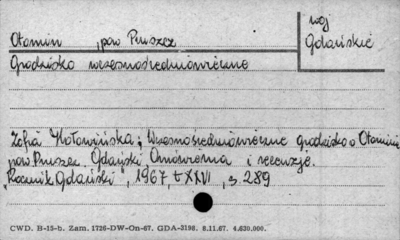 Otomin , pow Pruszcz
woj Gdańskie
Grodzisko wczesnośredniowieczne
Zofia Hołowińska; Wczesnośredniowieczne grodzisko o Otominie
pow. Pruszcz. Gdański, Omówienia i recenzje.
"Rocznik Gdański", 1967, t XXVI, s. 289
CWD. B-15-b. Zam. 1726-DW-On-67. GDA-3198. 8.11.67. 4.620.000.